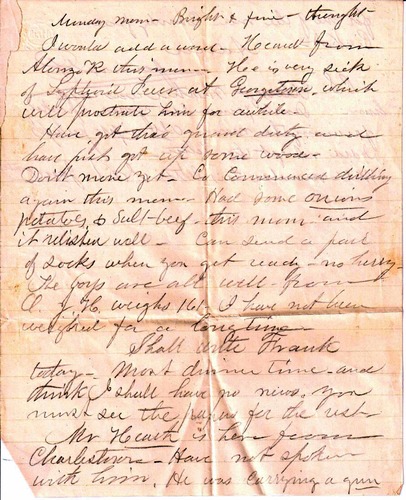 Monday morn - Bright & fine - thought
I would add a word - Heard from
Alonzo K this morn - He is very sick
of Typhoid Fever at Georgetown, which
will prostrate him for awhile -
Have got that guard duty and
have just got up some wood -
Don't move yet - Co commenced drilling
again this morn - Had some onions
potatoes & Salt-beef - this morn and
it relished well - Can send a pair
of socks when you get ready - no hurry -
The boys are all well - from
C. J. H. weighs 161 - I have not been
weighed for a long time -
Shall write Frank
today - Most dinner time - and
think I shall have no news. you
must see the papers for the rest -
Mr Heath is here from
Charlestown - Have not spoken
with him. He was carrying a gun